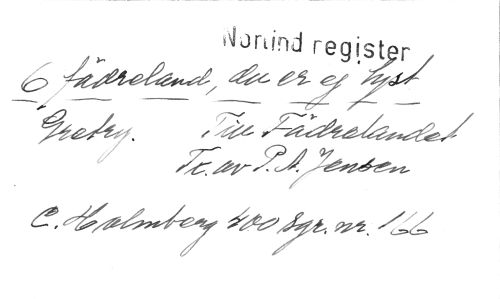 Norlind register
6 fädreland, du er ej lyst
Gretry. Till Fädrelandet
Tr. av P. A. Jensen
C. Holmberg 400 Sgr. nr. 166